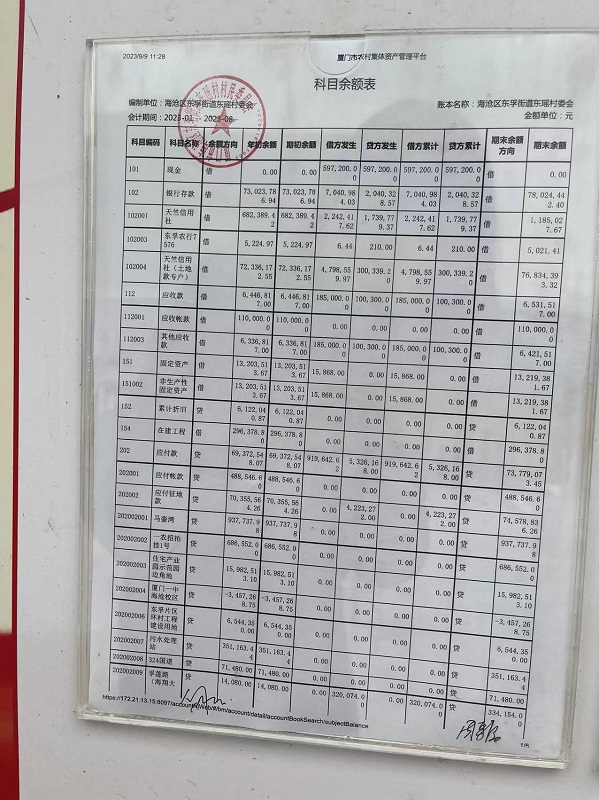 2023/9/9 11:28
厦门市农村集体资产管理平台
科目余额表
编制单位：海沧区东孚街道东瑶村委会
账本名称：海沧区东孚街道东瑶村委会
会计期间：2023-01 - 2023-08
金额单位：元
科目编码 科目名称 余额方向 年初余额 期初余额 借方发生 贷方发生 借方累计 贷方累计 期末余额方向 期末余额
101 现金 借 0.00 0.00 597,200.00 597,200.00 597,200.00 597,200.00 借 0.00
102 银行存款 借 73,023,786.94 73,023,786.94 7,040,984.03 2,040,328.57 7,040,984.03 2,040,328.57 借 78,024,442.40
102001 天竺信用社 借 682,389.42 682,389.42 2,242,417.62 1,739,779.37 2,242,417.62 1,739,779.37 借 1,185,027.67
102003 东孚农行7576 借 5,224.97 5,224.97 6.44 210.00 6.44 210.00 借 5,021.41
102004 天竺信用社（土地款专户） 借 72,336,172.55 72,336,172.55 4,798,559.97 300,339.20 4,798,559.97 300,339.20 借 76,834,393.32
112 应收款 借 6,446,817.00 6,446,817.00 185,000.00 100,300.00 185,000.00 100,300.00 借 6,531,517.00
112001 应收帐款 借 110,000.00 110,000.00 0.00 0.00 0.00 0.00 借 110,000.00
112003 其他应收款 借 6,336,817.00 6,336,817.00 185,000.00 100,300.00 185,000.00 100,300.00 借 6,421,517.00
151 固定资产 借 13,203,513.67 13,203,513.67 15,868.00 0.00 15,868.00 0.00 借 13,219,381.67
151002 非生产性固定资产 借 13,203,513.67 13,203,513.67 15,868.00 0.00 15,868.00 0.00 借 13,219,381.67
152 累计折旧 贷 6,122,040.87 6,122,040.87 0.00 0.00 0.00 0.00 贷 6,122,040.87
154 在建工程 借 296,378.80 296,378.80 0.00 0.00 0.00 0.00 借 296,378.80
202 应付款 贷 69,372,548.07 69,372,548.07 919,642.62 5,326,168.00 919,642.62 5,326,168.00 贷 73,779,073.45
202001 应付帐款 贷 488,546.60 488,546.60 0.00 0.00 0.00 0.00 贷 488,546.60
202002 应付征地款 贷 70,355,564.26 70,355,564.26 0.00 4,223,272.00 0.00 4,223,272.00 贷 74,578,836.26
202002001 马銮湾 贷 937,737.98 937,737.98 0.00 0.00 0.00 0.00 贷 937,737.98
202002002 一农招拍挂1号 贷 686,552.00 686,552.00 0.00 0.00 0.00 0.00 贷 686,552.00
202002003 住宅产业园示范园边角地 贷 15,982,513.10 15,982,513.10 0.00 0.00 0.00 0.00 贷 15,982,513.10
202002004 厦门一中海沧校区 贷 -3,457,268.75 -3,457,268.75 0.00 0.00 0.00 0.00 贷 -3,457,268.75
202002006 东孚片区环村工程建设用地 贷 6,544,350.00 6,544,350.00 0.00 0.00 0.00 0.00 贷 6,544,350.00
202002007 污水处理站 贷 351,163.44 351,163.44 0.00 0.00 0.00 0.00 贷 351,163.44
202002008 324国道 贷 71,480.00 71,480.00 0.00 0.00 0.00 0.00 贷 71,480.00
202002009 孚莲路（海翔大 贷 14,080.00 14,080.00 0.00 320,074.00 0.00 320,074.00 贷 334,154.00
1/8